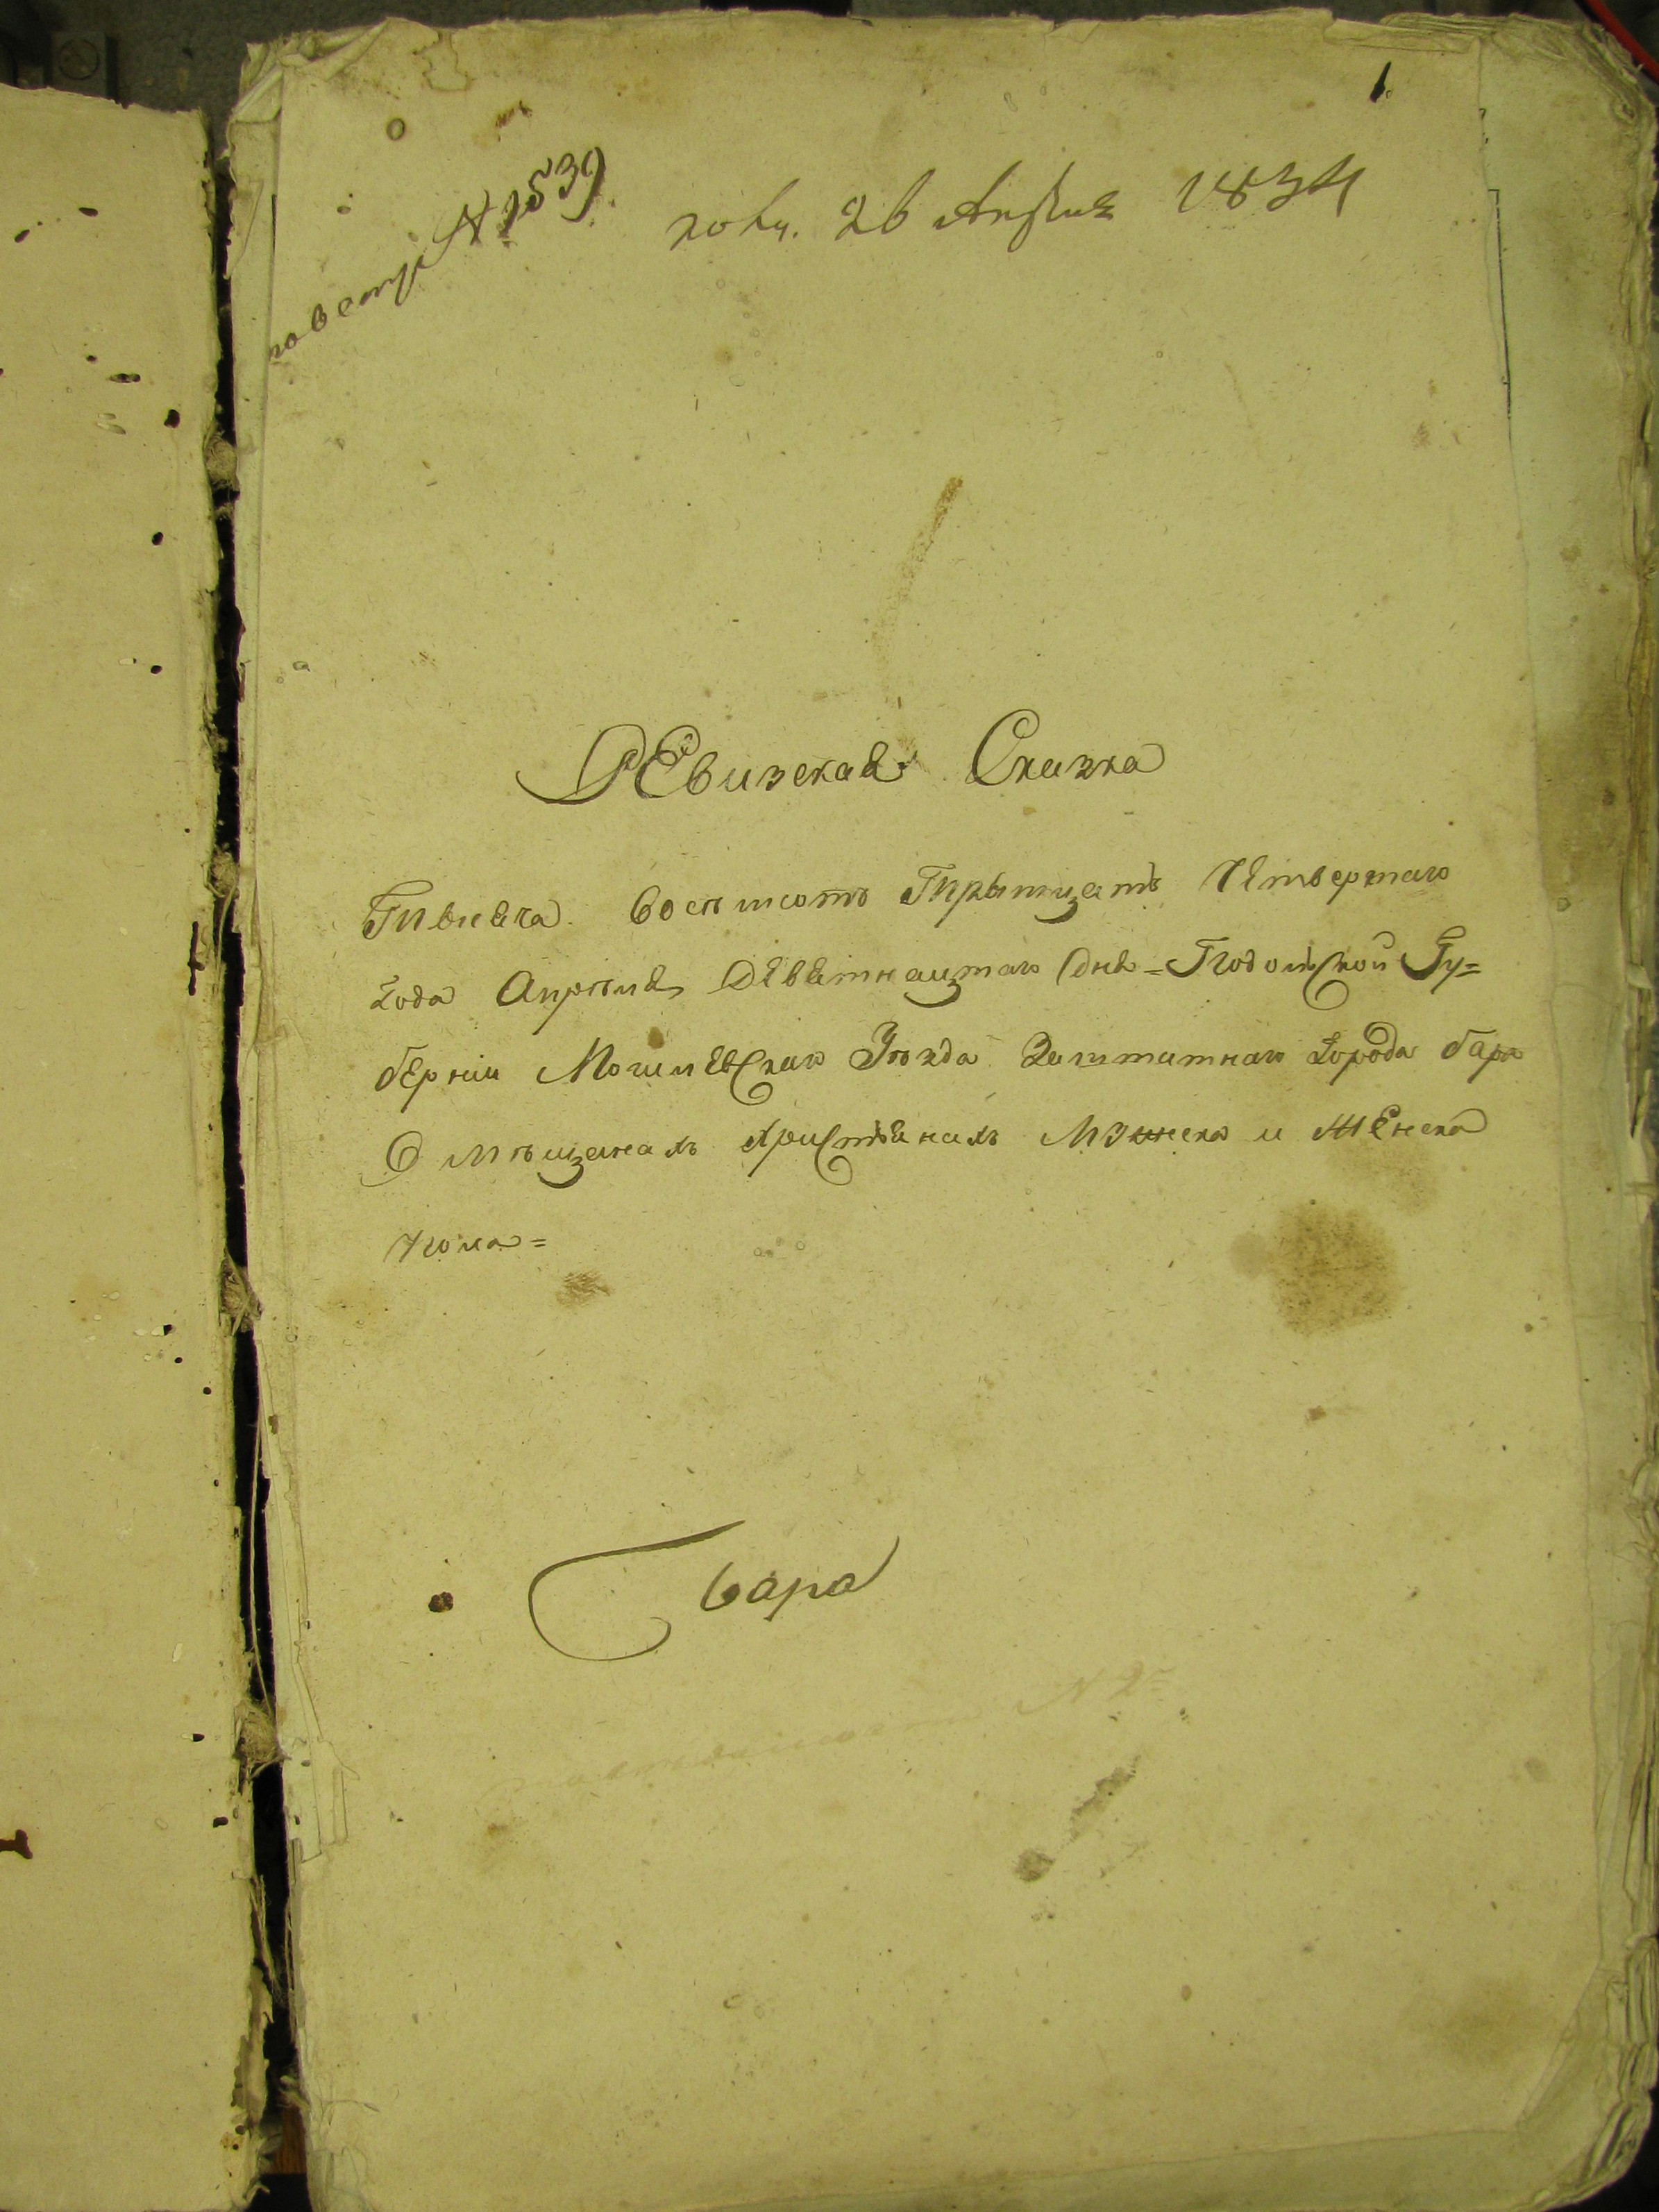 1
по вету N 1539
получ. 26 Апреля 1834
РЕвизская Сказка
Тысяча Восемсотъ Трытцать Четвертаго
Года Апреля Девятнацтаго Дня = Подольской Гу=
берніи Могилевскаго Уезда Заштатнаго Города бара
О мещанахъ христіянахъ Мужеска и Женска
пола =
Бара
N 2